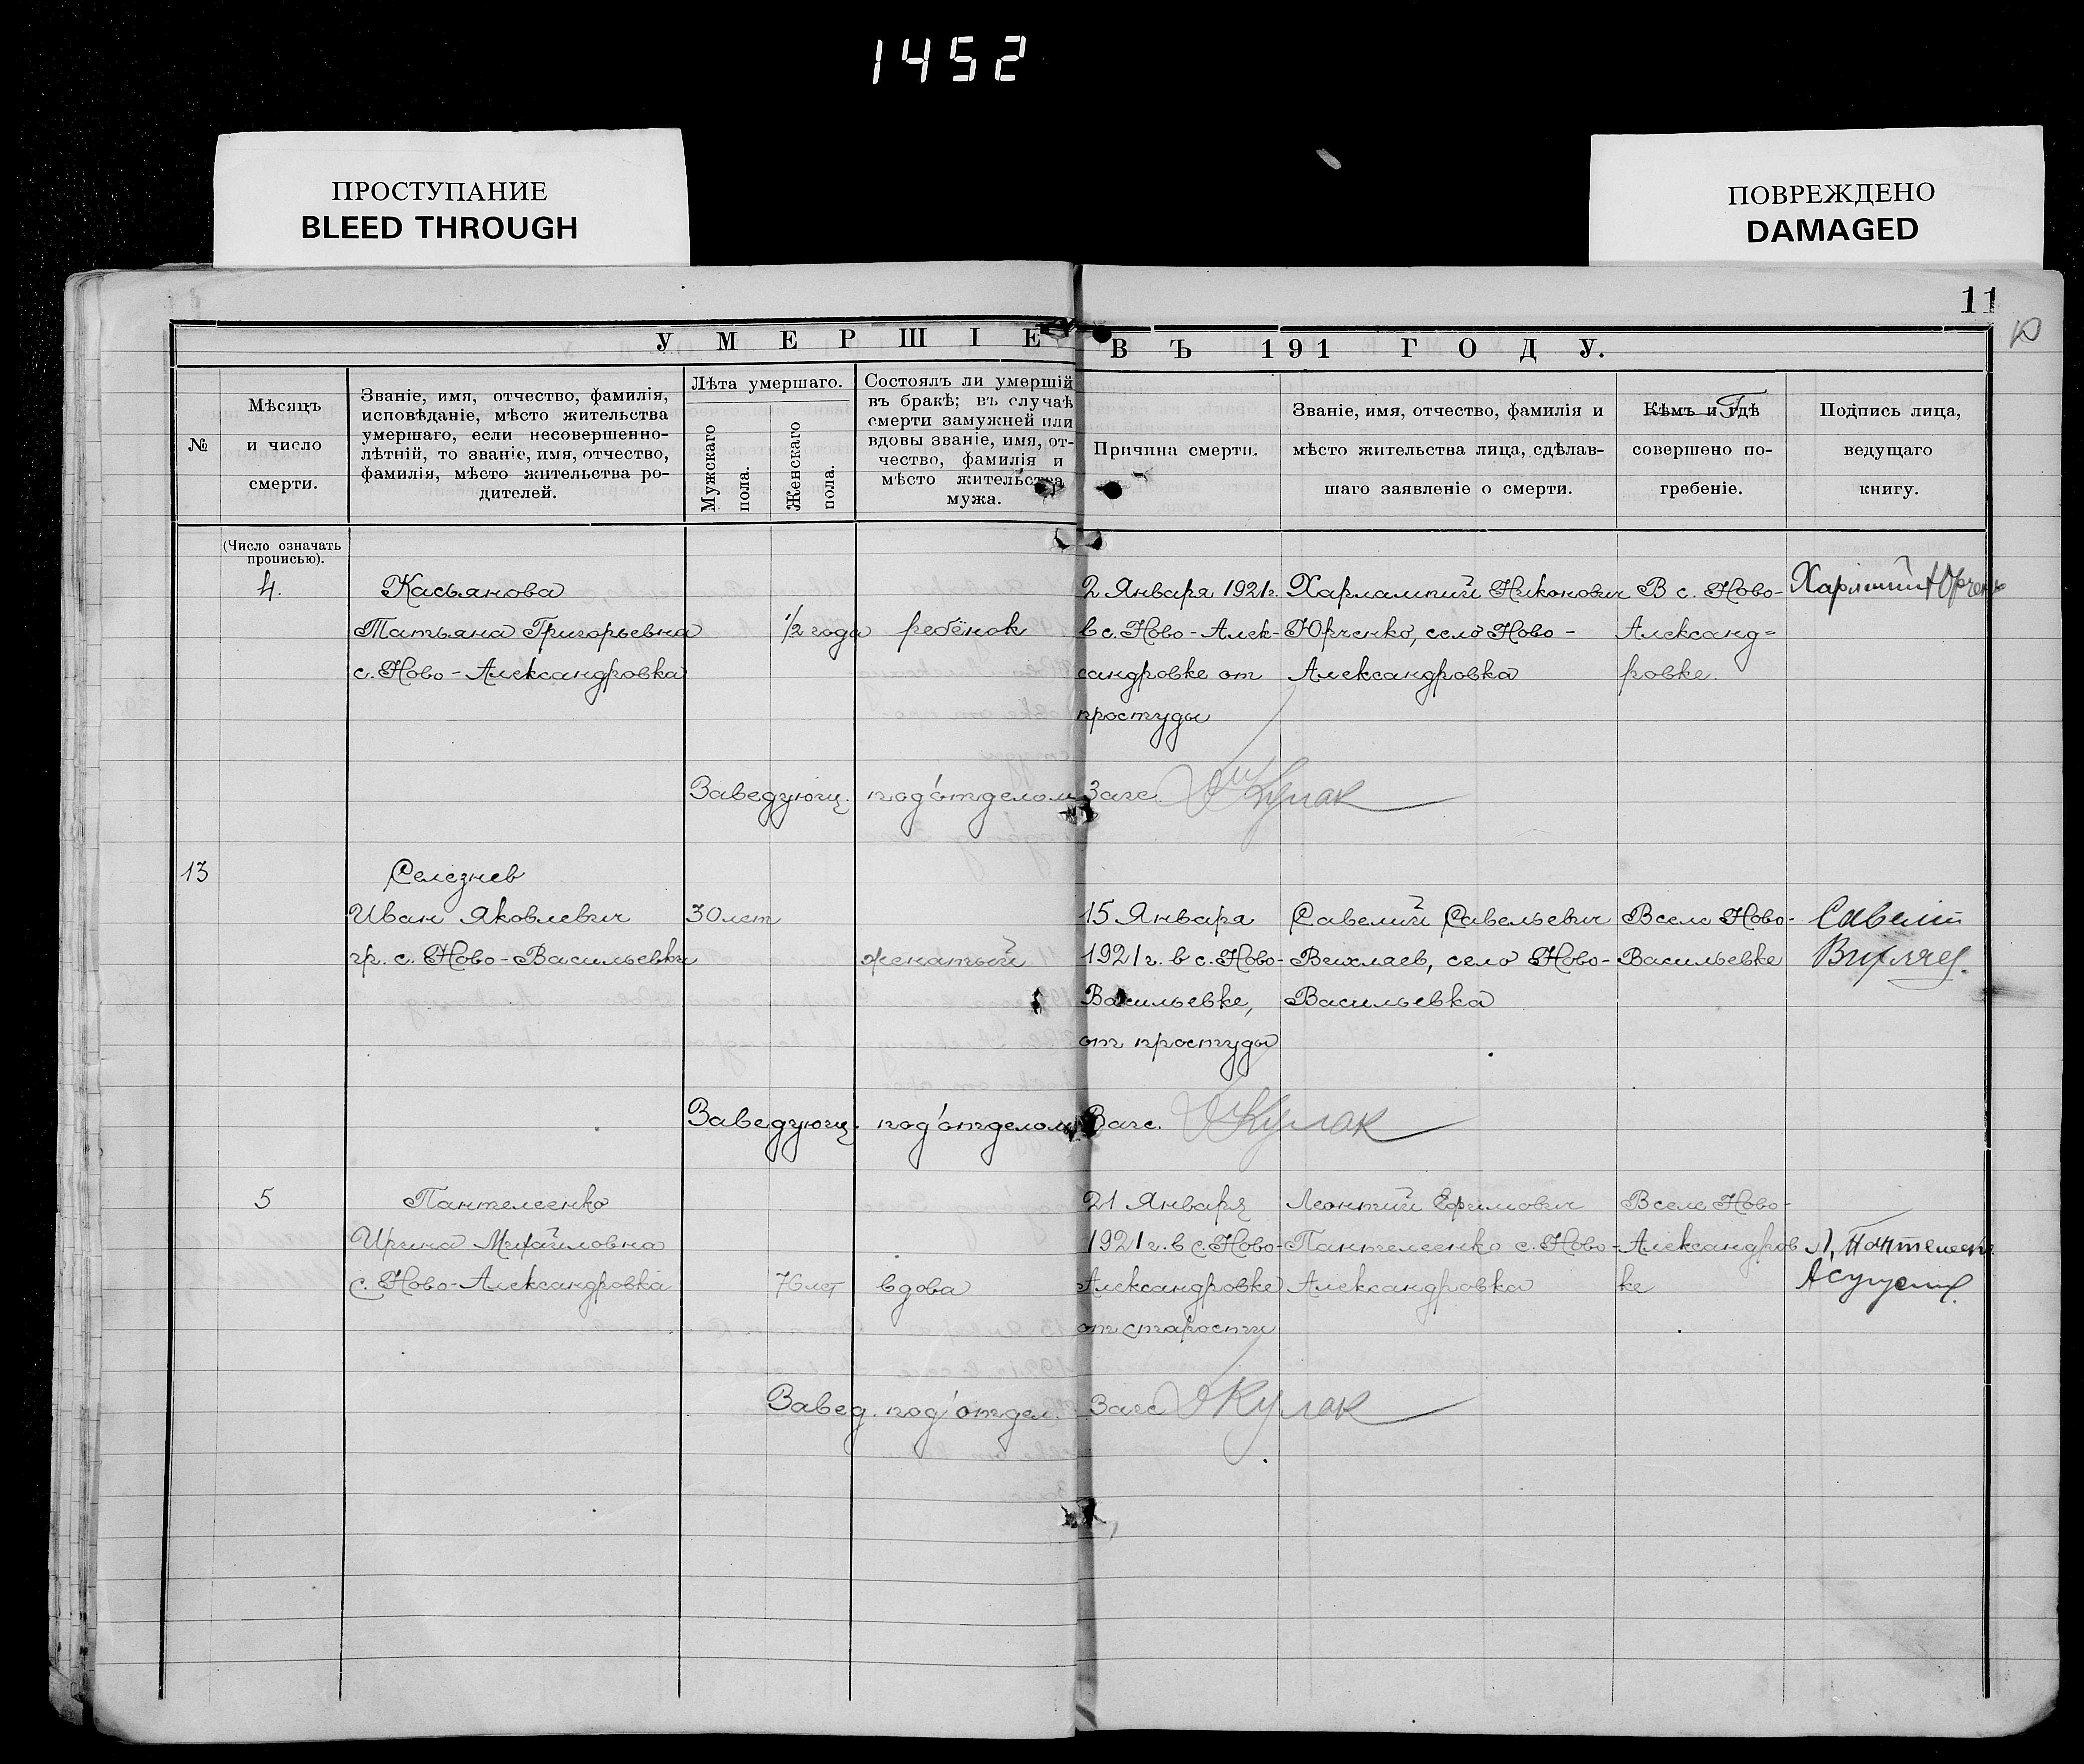 1452
ПРОСТУПАНИЕ
BLEED THROUGH
ПОВРЕЖДЕНО
DAMAGED
11
10
УМЕРШІЕ ВЪ 191 ГОДУ.
№
Мѣсяцъ
и число
смерти.
Званіе, имя, отчество, фамилія,
исповѣданіе, мѣсто жительства
умершаго, если несовершенно-
лѣтній, то званіе, имя, отчество,
фамилія, мѣсто жительства ро-
дителей.
Лѣта умершаго.
Мужскаго
пола.
Женскаго
пола.
Состоялъ ли умершій
въ бракѣ; въ случаѣ
смерти замужней или
вдовы званіе, имя, от-
чество, фамилія и
мѣсто жительства
мужа.
Причина смерти.
Званіе, имя, отчество, фамилія и
мѣсто жительства лица, сдѣлав-
шаго заявленіе о смерти.
Кѣмъ и гдѣ
совершено по-
гребеніе.
Подпись лица,
ведущаго
книгу.
(Число означать
прописью).
4.
Касьянова
Татьяна Григорьевна
с. Ново-Александровка
1/2 года
ребёнок
2 Января 1921г.
в с. Ново-Алек-
сандровке от
простуды
Харлампий Никонович
Юрченко, село Ново-
Александровка
В с. Ново-
Александ=
ровке.
Заведующ. под'отделом Загс Кулак
13
Селезнев
Иван Яковлевич
гр. с. Ново-Васильевки
30 лет
женатый
15 Января
1921г. в с. Ново-
Васильевке,
от простуды
Савелий Савельевич
Вихляев, село Ново-
Васильевка
В селе Ново-
Васильевке
Савелий
Вихляев
Заведующ. под'отделом Загс. Кулак
5
Пантелеенко
Ирина Михайловна
с. Ново-Александровка
76 лет
вдова
21 Января
1921г. в с. Ново-
Александровке
от старости
Леонтий Ефимович
Пантелеенко с. Ново-
Александровка
В селе Ново-
Александров
ке
Завед. под'отдел. Загс Кулак